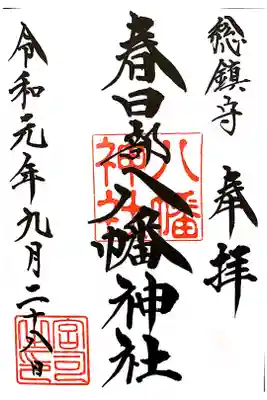 奉拝
総鎮守
春日部八幡神社
八幡
神社
令和元年九月二十八日
宮司之印